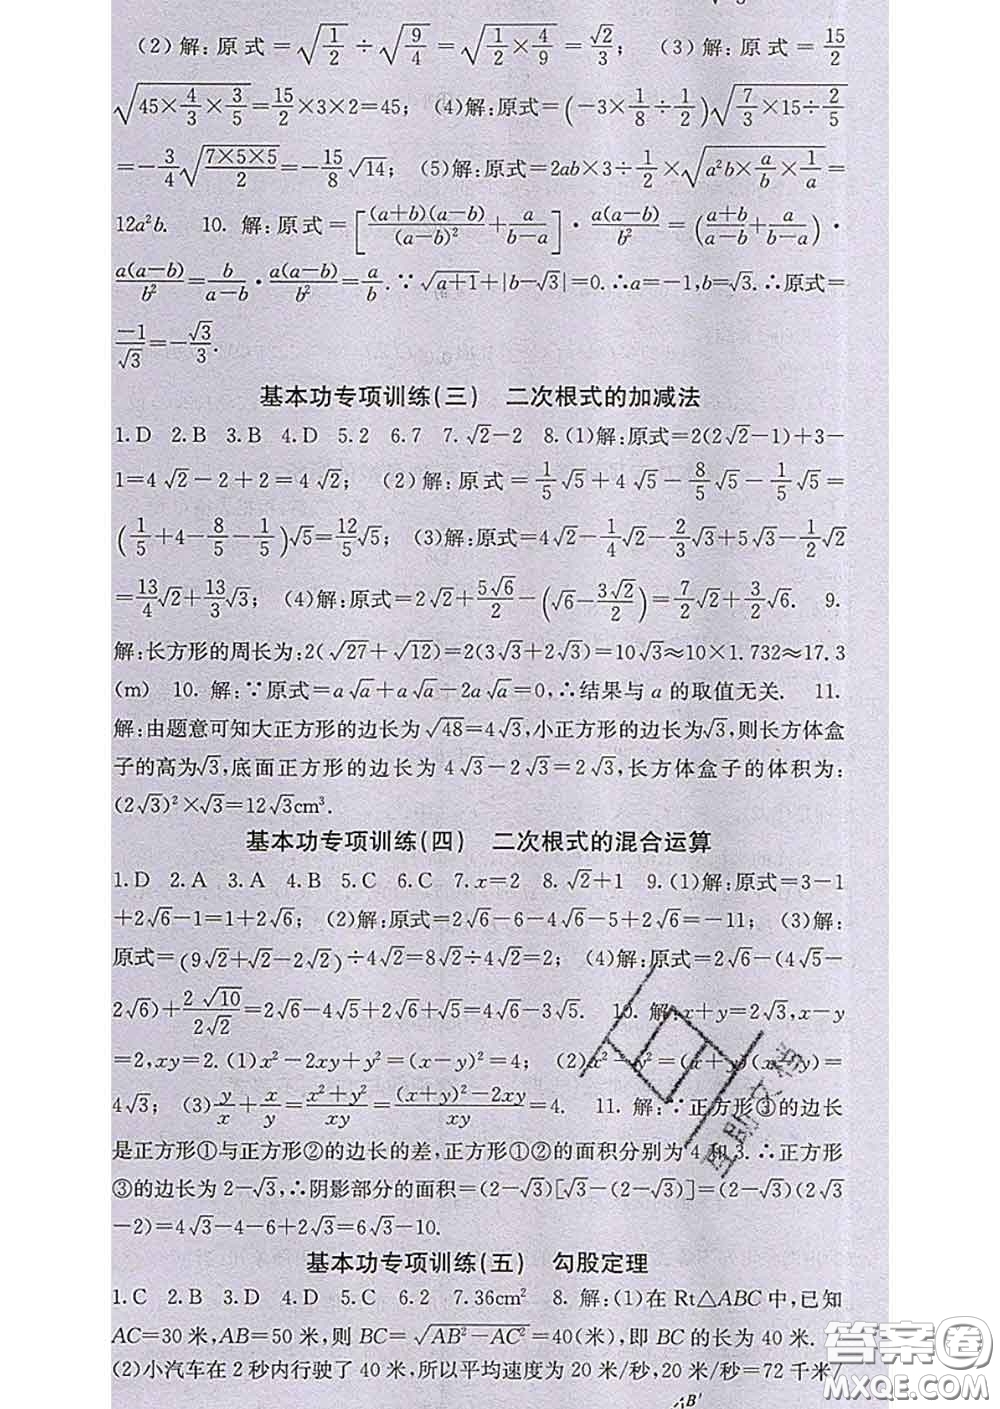 (2)解:原式=√(1/2)÷√(9/4)=√(1/2×4/9)=√2/3; (3)解:原式=15/2
√(45×4/3×3/5)=15/2×3×2=45; (4)解:原式=(-3×1/8÷1/2)√(7/3×15÷2/5)
=-3/4√(7×5×5/2)=-15/8√14; (5)解:原式=2ab×3÷1/2×√(a²b×a/b×1/a)=
12a²b. 10. 解:原式=[(a+b)(a-b)/(a-b)²+a/(b-a)]·a(a-b)/b²=(a+b/a-b+a/b-a)·
a(a-b)/b²=b/(a-b)·a(a-b)/b²=a/b.∵√(a+1)+|b-√3|=0.∴a=-1,b=√3.∴原式=
-1/√3=-√3/3.
基本功专项训练(三) 二次根式的加减法
1.D 2.B 3.B 4.D 5.2 6.7 7.√2-2 8.(1)解:原式=2(2√2-1)+3-
1=4√2-2+2=4√2; (2)解:原式=1/5√5+4√5-8/5√5-1/5√5=
(1/5+4-8/5-1/5)√5=12/5√5; (3)解:原式=4√2-1/4√2-2/3√3+5√3-1/2√2
=13/4√2+13/3√3; (4)解:原式=2√2+5√6/2-(√6-3√2/2)=7/2√2+3/2√6. 9.
解:长方形的周长为:2(√27+√12)=2(3√3+2√3)=10√3≈10×1.732≈17.3
(m) 10. 解:∵原式=a√a+a√a-2a√a=0,∴结果与a的取值无关. 11.
解:由题意可知大正方形的边长为√48=4√3,小正方形的边长为√3,则长方体盒
子的高为√3,底面正方形的边长为4√3-2√3=2√3,长方体盒子的体积为:
(2√3)²×√3=12√3cm³.
基本功专项训练(四) 二次根式的混合运算
1.D 2.A 3.A 4.B 5.C 6.C 7.x=2 8.√2+1 9.(1)解:原式=3-1
+2√6-1=1+2√6; (2)解:原式=2√6-6-4√6-5+2√6=-11; (3)解:
原式=(9√2+√2-2√2)÷4√2=8√2÷4√2=2; (4)解:原式=2√6-(4√5-
2√6)+2√10/2√2=2√6-4√5+2√6+√5=4√6-3√5. 10. 解:x+y=2√3,x-y
=2,xy=2.(1)x²-2xy+y²=(x-y)²=4; (2)x²-y²=(x+y)(x-y)=
4√3; (3)y/x+x/y=(x²+y²)/xy=((x+y)²-2xy)/xy=4. 11. 解:∵正方形③的边长
是正方形①与正方形②的边长的差,正方形①②的面积分别为4和3.∴正方形
③的边长为2-√3,∴阴影部分的面积=(2-√3)[√3-(2-√3)]=(2-√3)(2√3
-2)=4√3-4-6+2√3=6√3-10.
基本功专项训练(五) 勾股定理
1.C 2.B 3.D 4.D 5.C 6.2 7.36cm² 8.解:(1)在Rt△ABC中,已知
AC=30米,AB=50米,则BC=√(AB²-AC²)=40(米),即BC的长为40米.
(2)小汽车在2秒内行驶了40米,所以平均速度为20米/秒,20米/秒=72千米/
B′
答案圈
MXQE.COM